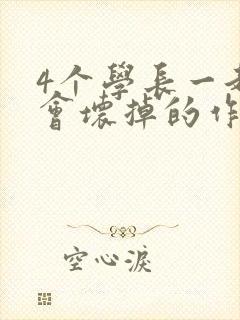 4个學長一
會壞掉的作
空心淚